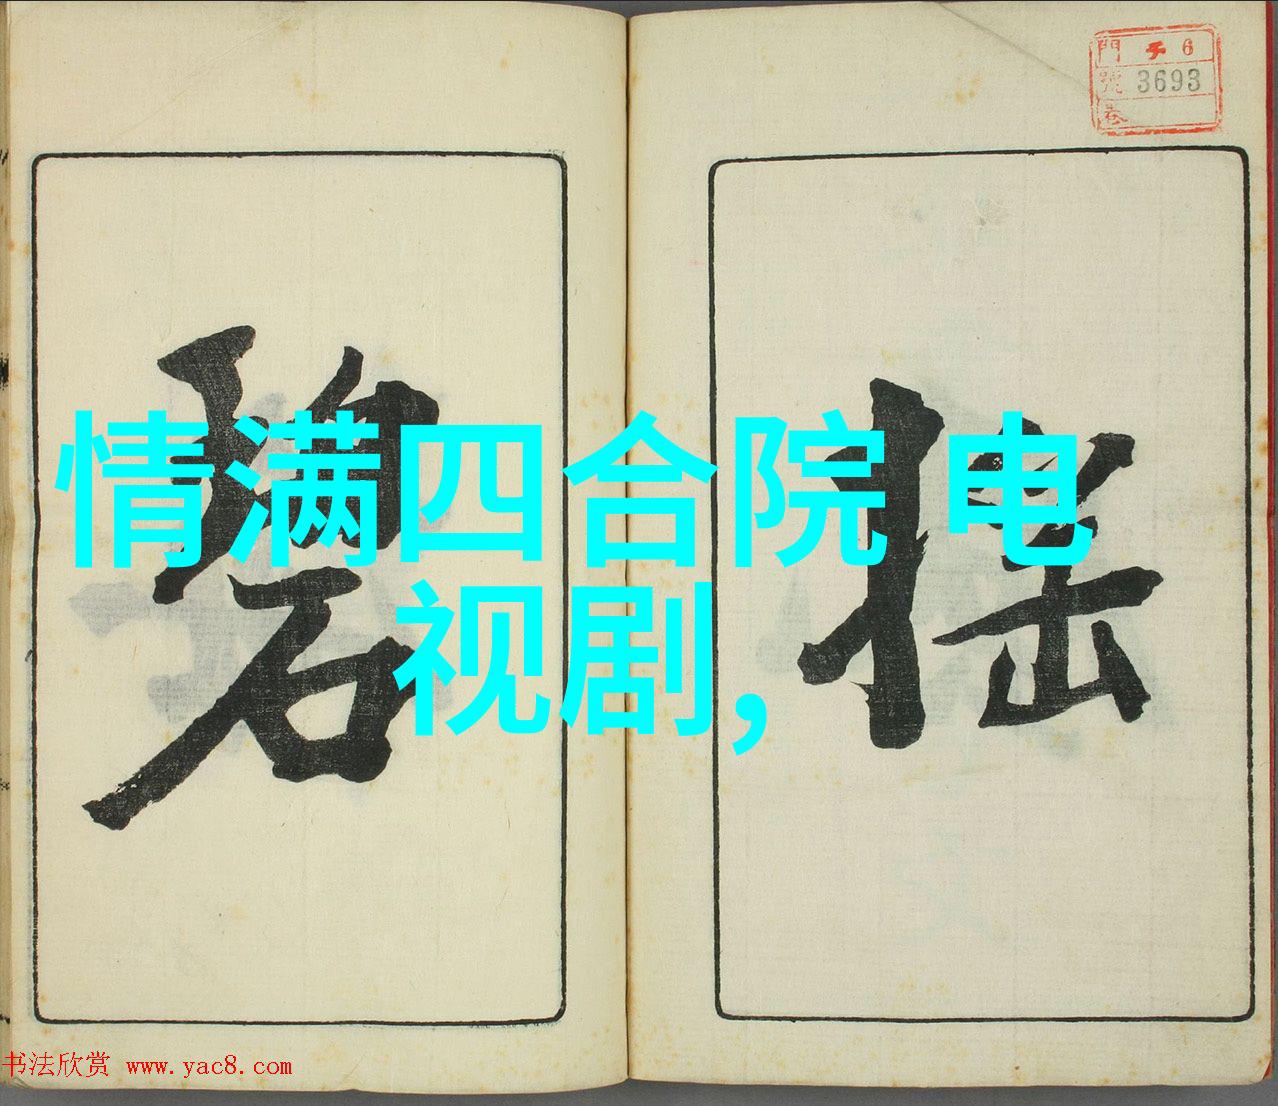 門 6
號 3693
卷
情满四合院 电
视剧,
碧
摇
书法欣赏 www.yac8.com